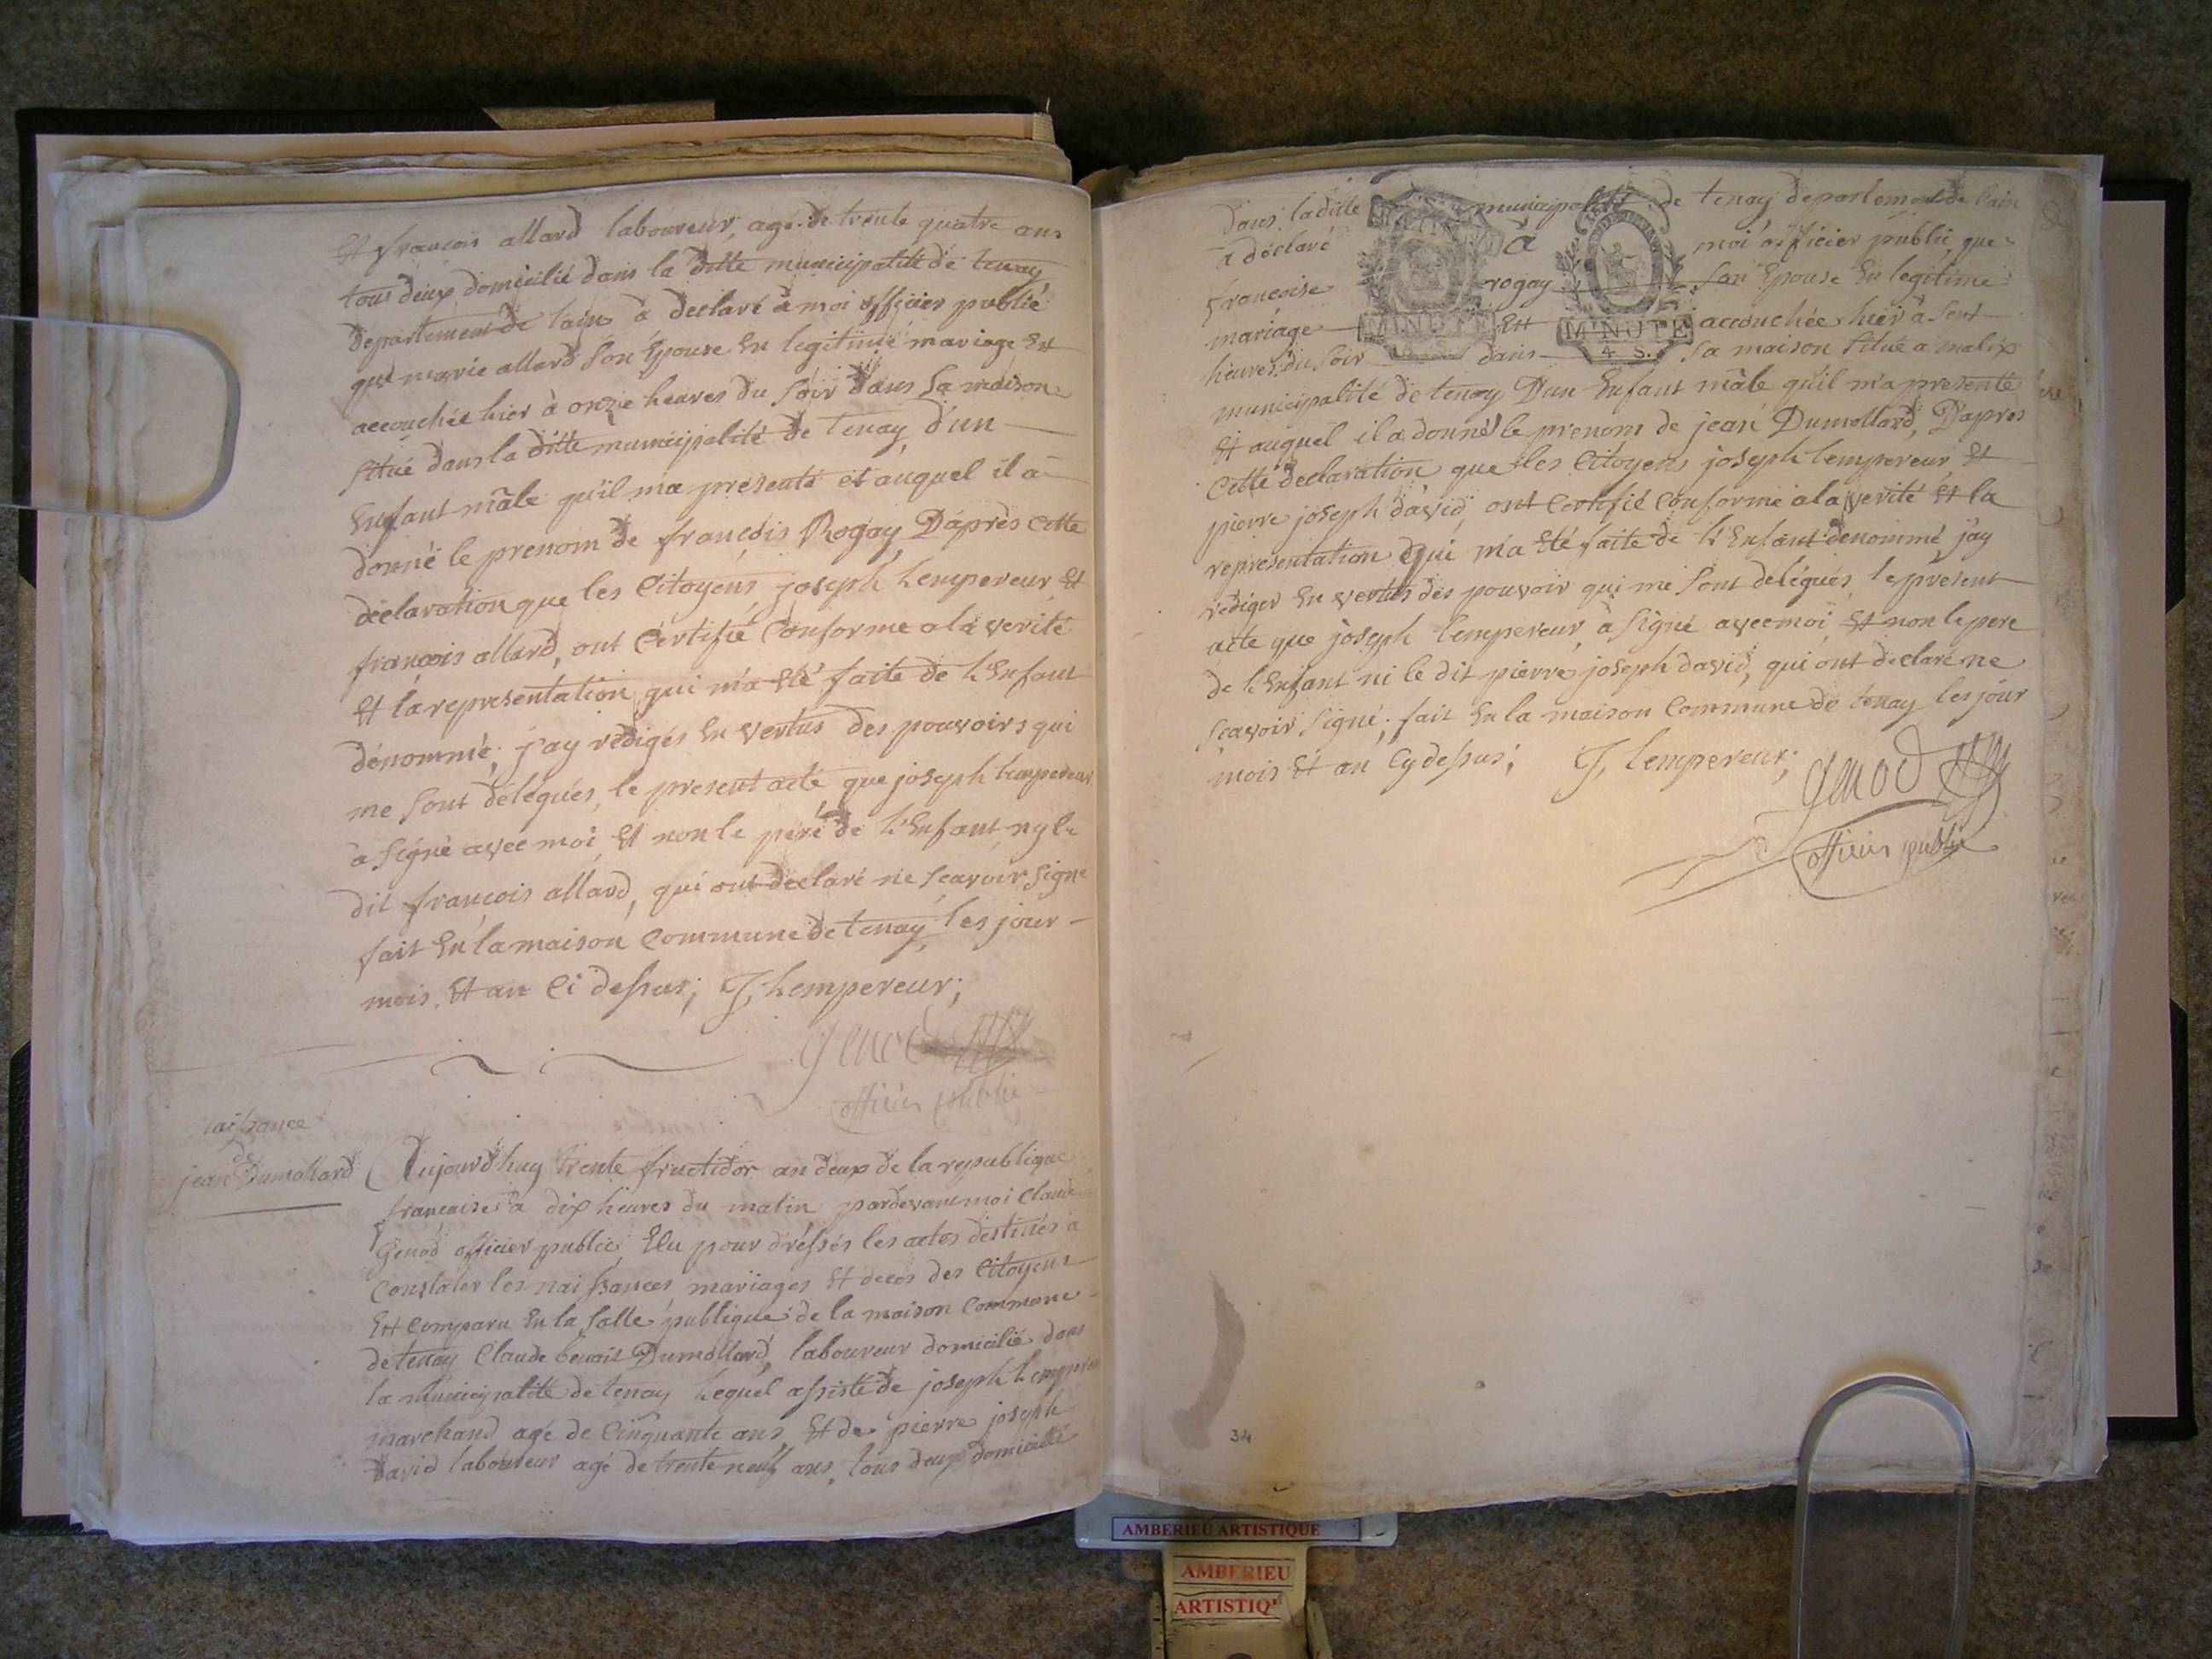 Et françois allard laboureur, agé de trente quatre ans
tous deux domicilié dans la ditte municipalité de tenay
departement de lain à declaré à moi officier public
que marie allard son Epouse En legitime mariage Est
accouchée hier à onze heures du soir dans sa maison
situé dans la ditte municipalité de tenay d'un
Enfant mâle qu'il ma presenté et auquel il à
donné le prenom de françois Rogay, D'après cette
déclaration que les Citoyens joseph lempereur, Et
françois allard, ont Certifié Conforme a la verité
Et la representation qui m'a Eté faite de l'Enfant
dénommé, j'ay rédigés En vertus des pouvoirs qui
me sont délégués, le present acte que joseph lempereur
a signé avec moi Et non le pere de l'Enfant, ny le
dit françois allard, qui ont declaré ne scavoir signé
fait En la maison Commune de tenay, les jour
mois, Et an Ci dessus; J, Lempereur;
genod
officier public
naissance
de
jean Dumollard
Aujourdhuy trente fructidor an deux de la republique
françaises à dix heures du matin pardevant moi Claude
Genod officier public Elu pour dréssés les actes destinés à
Constater les naissances, mariages Et deces des Citoyens
Est Comparu En la salle publique de la maison Commune
de tenay Claude benoit Dumollard, laboureur domicilié dans
la municipalité de tenay lequel assisté de joseph lempereur
marchand agé de Cinquante ans, Et de pierre joseph
David laboureur agé de trente neuf ans, tous deux domicilié
dans la ditte municipalité de tenay departement de lain
a déclaré à moi officier public, que
françoise rogay son Epouse En legitime
mariage Est accouchée hier à sent
heures du soir dans sa maison situé a malix
MINUTE
MINUTE
4 S.
municipalité de tenay D'un Enfant mâle qu'il m'a presenté
Et auquel il a donné le prenom de jean Dumollard, D'apres
Cette declaration que les Citoyens joseph lempereur, Et
pierre joseph david, ont Certifié Conforme a la verité Et la
representation qui m'a Eté faite de l'Enfant denommé, j'ay
rediger En vertus des pouvoir qui me sont délégués, le present
acte que joseph lempereur, à signé avec moi, Et non le pere
de l'Enfant ni le dit pierre joseph david, qui ont declaré ne
scavoir signé; fait En la maison Commune de tenay les jour
mois Et an Cy dessus; J, lempereur;
genod
officier public
34
AMBERIEU ARTISTIQUE
AMBERIEU
ARTISTIQ'